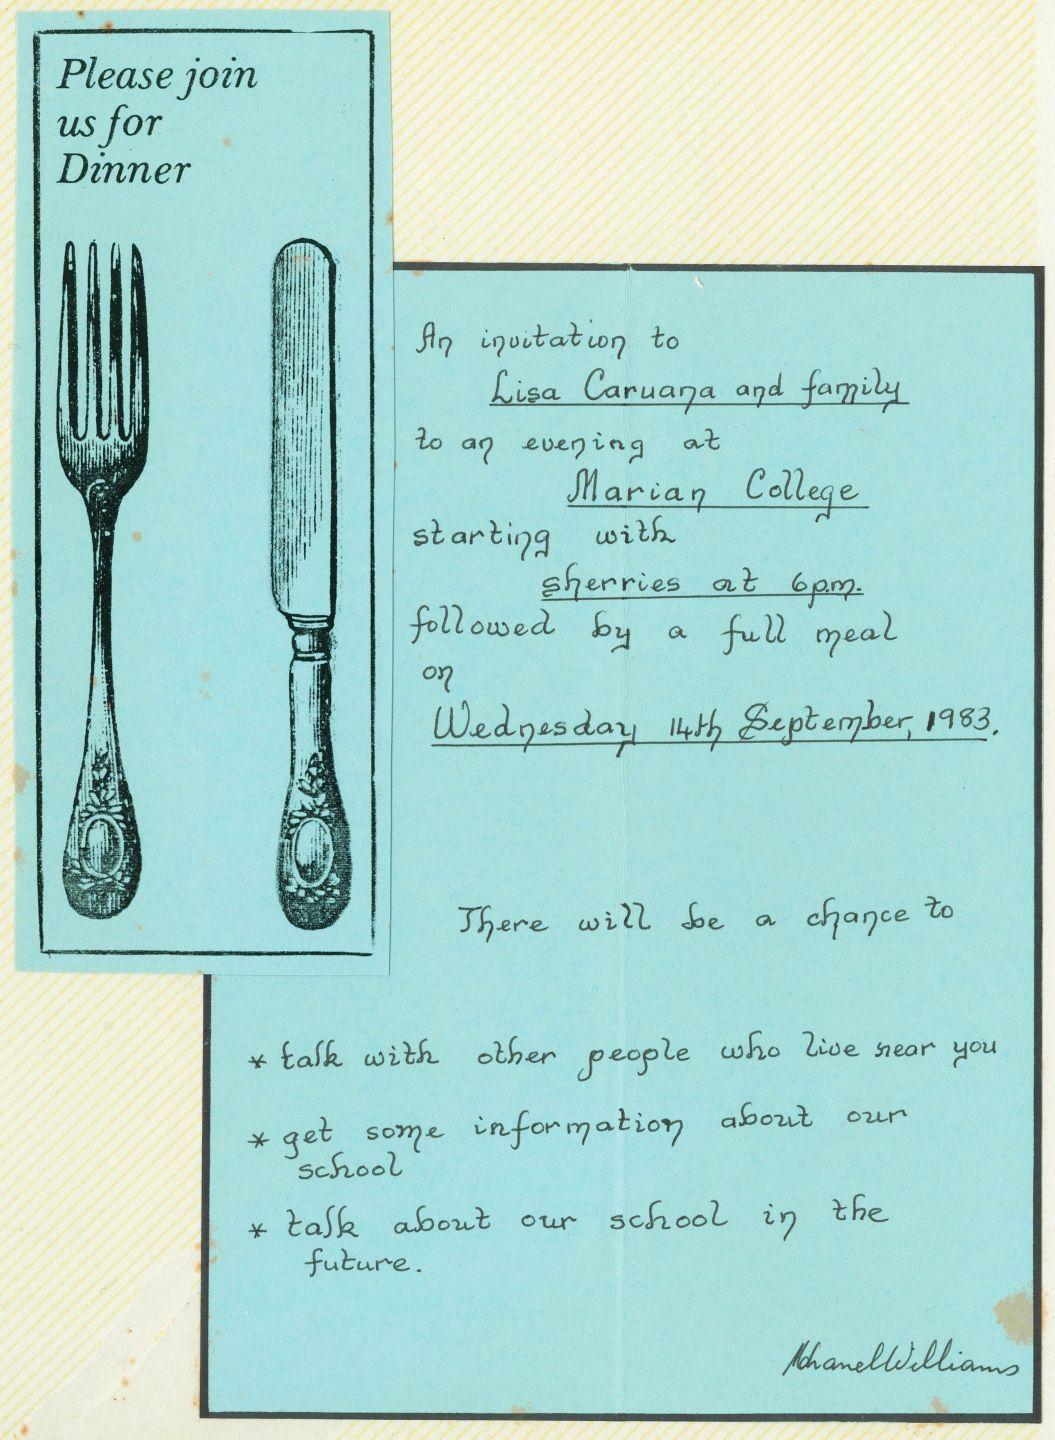 Please join
us for
Dinner
An invitation to
Lisa Caruana and family
to an evening at
Marian College
starting with
sherries at 6p.m.
followed by a full meal
on
Wednesday 14th September, 1983.
There will be a chance to
* talk with other people who live near you
* get some information about our
school
* talk about our school in the
future.
Williams